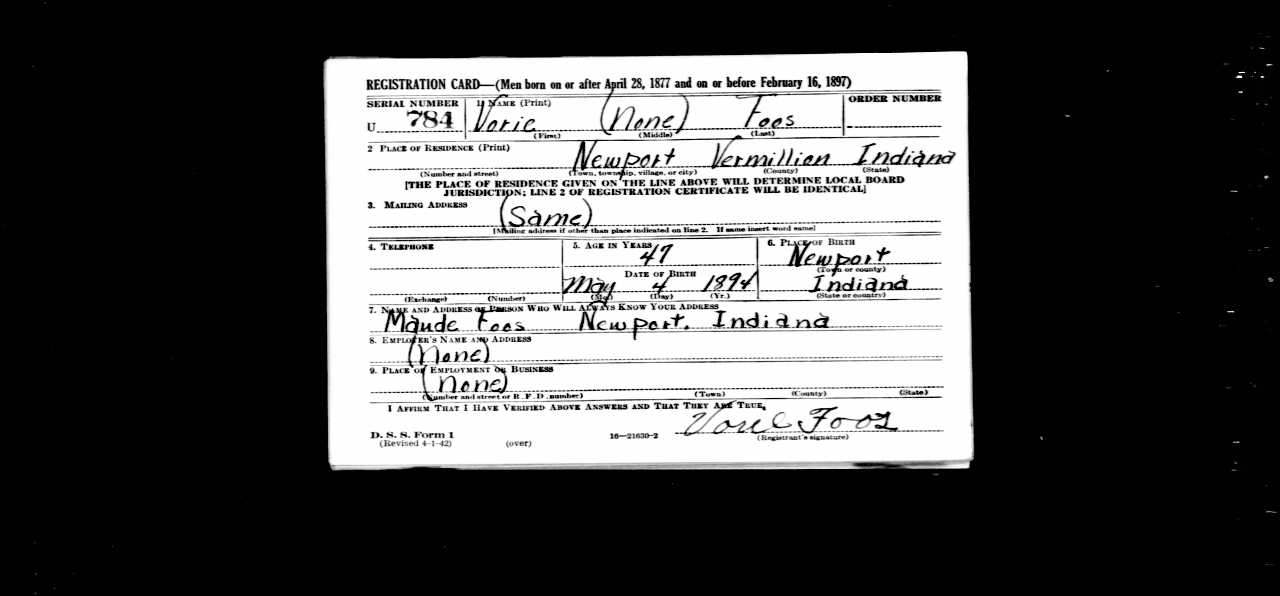 REGISTRATION CARD—(Men born on or after April 28, 1877 and on or before February 16, 1897)
SERIAL NUMBER 1. NAME (Print) ORDER NUMBER
U 784 Voric (None) Foos
(First) (Middle) (Last)
2 PLACE OF RESIDENCE (Print)
Newport Vermillion Indiana
(Number and street) (Town, township, village, or city) (County) (State)
[THE PLACE OF RESIDENCE GIVEN ON THE LINE ABOVE WILL DETERMINE LOCAL BOARD
JURISDICTION; LINE 2 OF REGISTRATION CERTIFICATE WILL BE IDENTICAL]
3. MAILING ADDRESS
(Same)
[Mailing address if other than place indicated on line 2. If same insert word same]
4. TELEPHONE 5. AGE IN YEARS 6. PLACE OF BIRTH
47 Newport
DATE OF BIRTH (Town or county)
May 4 1894 Indiana
(Exchange) (Number) (Mo.) (Day) (Yr.) (State or country)
7. NAME AND ADDRESS OF PERSON WHO WILL ALWAYS KNOW YOUR ADDRESS
Maude Foos Newport. Indiana
8. EMPLOYER'S NAME AND ADDRESS
(None)
9. PLACE OF EMPLOYMENT OR BUSINESS
(None)
(Number and street or R. F. D. number) (Town) (County) (State)
I AFFIRM THAT I HAVE VERIFIED ABOVE ANSWERS AND THAT THEY ARE TRUE.
Voric Foos
D. S. S. Form 1
(Revised 4-1-42) (over) 16—21630-2 (Registrant's signature)